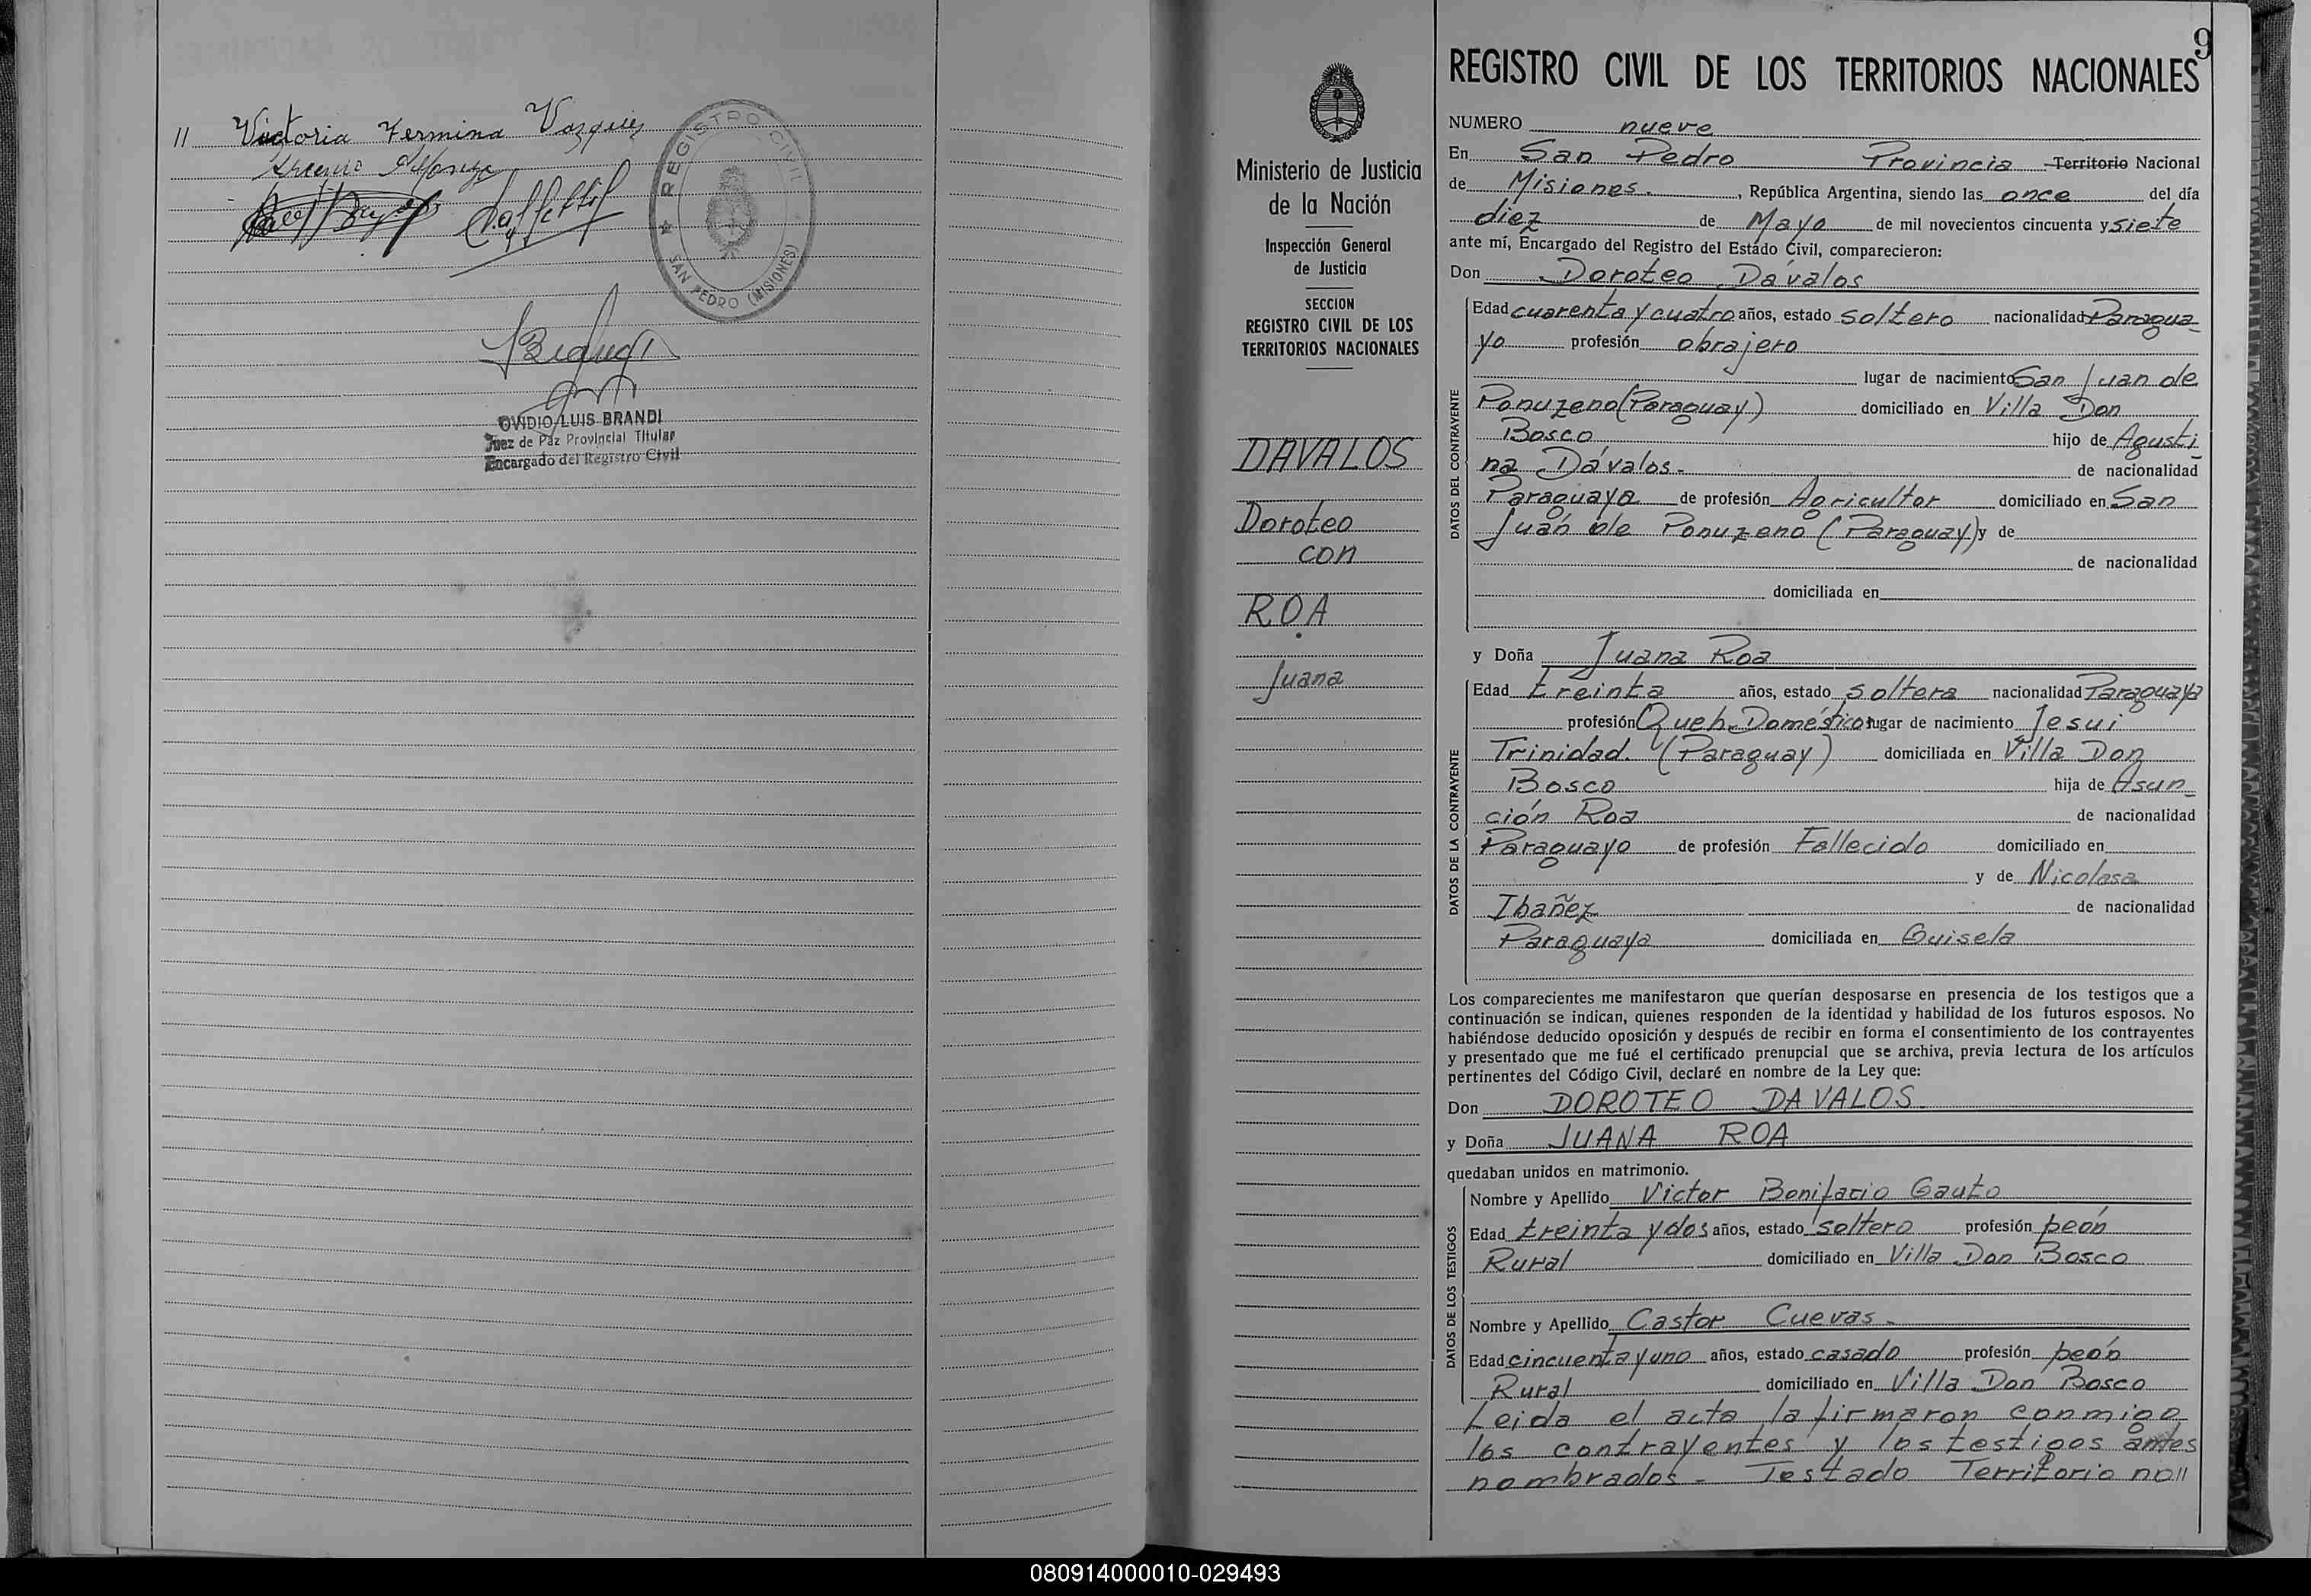 11 Victoria Fermina Vazquez
REGISTRO CIVIL
SAN PEDRO (MISIONES)
OVIDIO LUIS BRANDI
Juez de Paz Provincial Titular
Encargado del Registro Civil
9
Ministerio de Justicia
de la Nación
Inspección General
de Justicia
SECCION
REGISTRO CIVIL DE LOS
TERRITORIOS NACIONALES
DAVALOS
Doroteo
con
ROA
Juana
REGISTRO CIVIL DE LOS TERRITORIOS NACIONALES
NUMERO nueve
En San Pedro Provincia Territorio Nacional
de Misiones. , República Argentina, siendo las once del día
diez de Mayo de mil novecientos cincuenta y siete
ante mí, Encargado del Registro del Estado Civil, comparecieron:
Don Doroteo Dávalos
DATOS DEL CONTRAYENTE
Edad cuarenta y cuatro años, estado soltero nacionalidad Paragua-
yo profesión obrajero
lugar de nacimiento San Juan de
Ponuzeno (Paraguay) domiciliado en Villa Don
Bosco hijo de Agusti-
na Dávalos- de nacionalidad
Paraguaya de profesión Agricultor domiciliado en San
Juan de Ponuzeno (Paraguay) y de
de nacionalidad
domiciliada en
y Doña Juana Roa
DATOS DE LA CONTRAYENTE
Edad treinta años, estado soltera nacionalidad Paraguaya
profesión Queh. Doméstico lugar de nacimiento Jesui
Trinidad. (Paraguay) domiciliada en Villa Don
Bosco hija de Asun-
ción Roa de nacionalidad
Paraguayo de profesión Fallecido domiciliado en
y de Nicolasa
Ibañez de nacionalidad
Paraguaya domiciliada en Guisela
Los comparecientes me manifestaron que querían desposarse en presencia de los testigos que a
continuación se indican, quienes responden de la identidad y habilidad de los futuros esposos. No
habiéndose deducido oposición y después de recibir en forma el consentimiento de los contrayentes
y presentado que me fué el certificado prenupcial que se archiva, previa lectura de los artículos
pertinentes del Código Civil, declaré en nombre de la Ley que:
Don DOROTEO DAVALOS
y Doña JUANA ROA
quedaban unidos en matrimonio.
DATOS DE LOS TESTIGOS
Nombre y Apellido Victor Bonifacio Gauto
Edad treinta y dos años, estado soltero profesión peón
Rural domiciliado en Villa Don Bosco
Nombre y Apellido Castor Cuevas-
Edad cincuenta y uno años, estado casado profesión peón
Rural domiciliado en Villa Don Bosco
Leida el acta la firmaron conmigo
los contrayentes y los testigos antes
nombrados- Testado Territorio no11
080914000010-029493